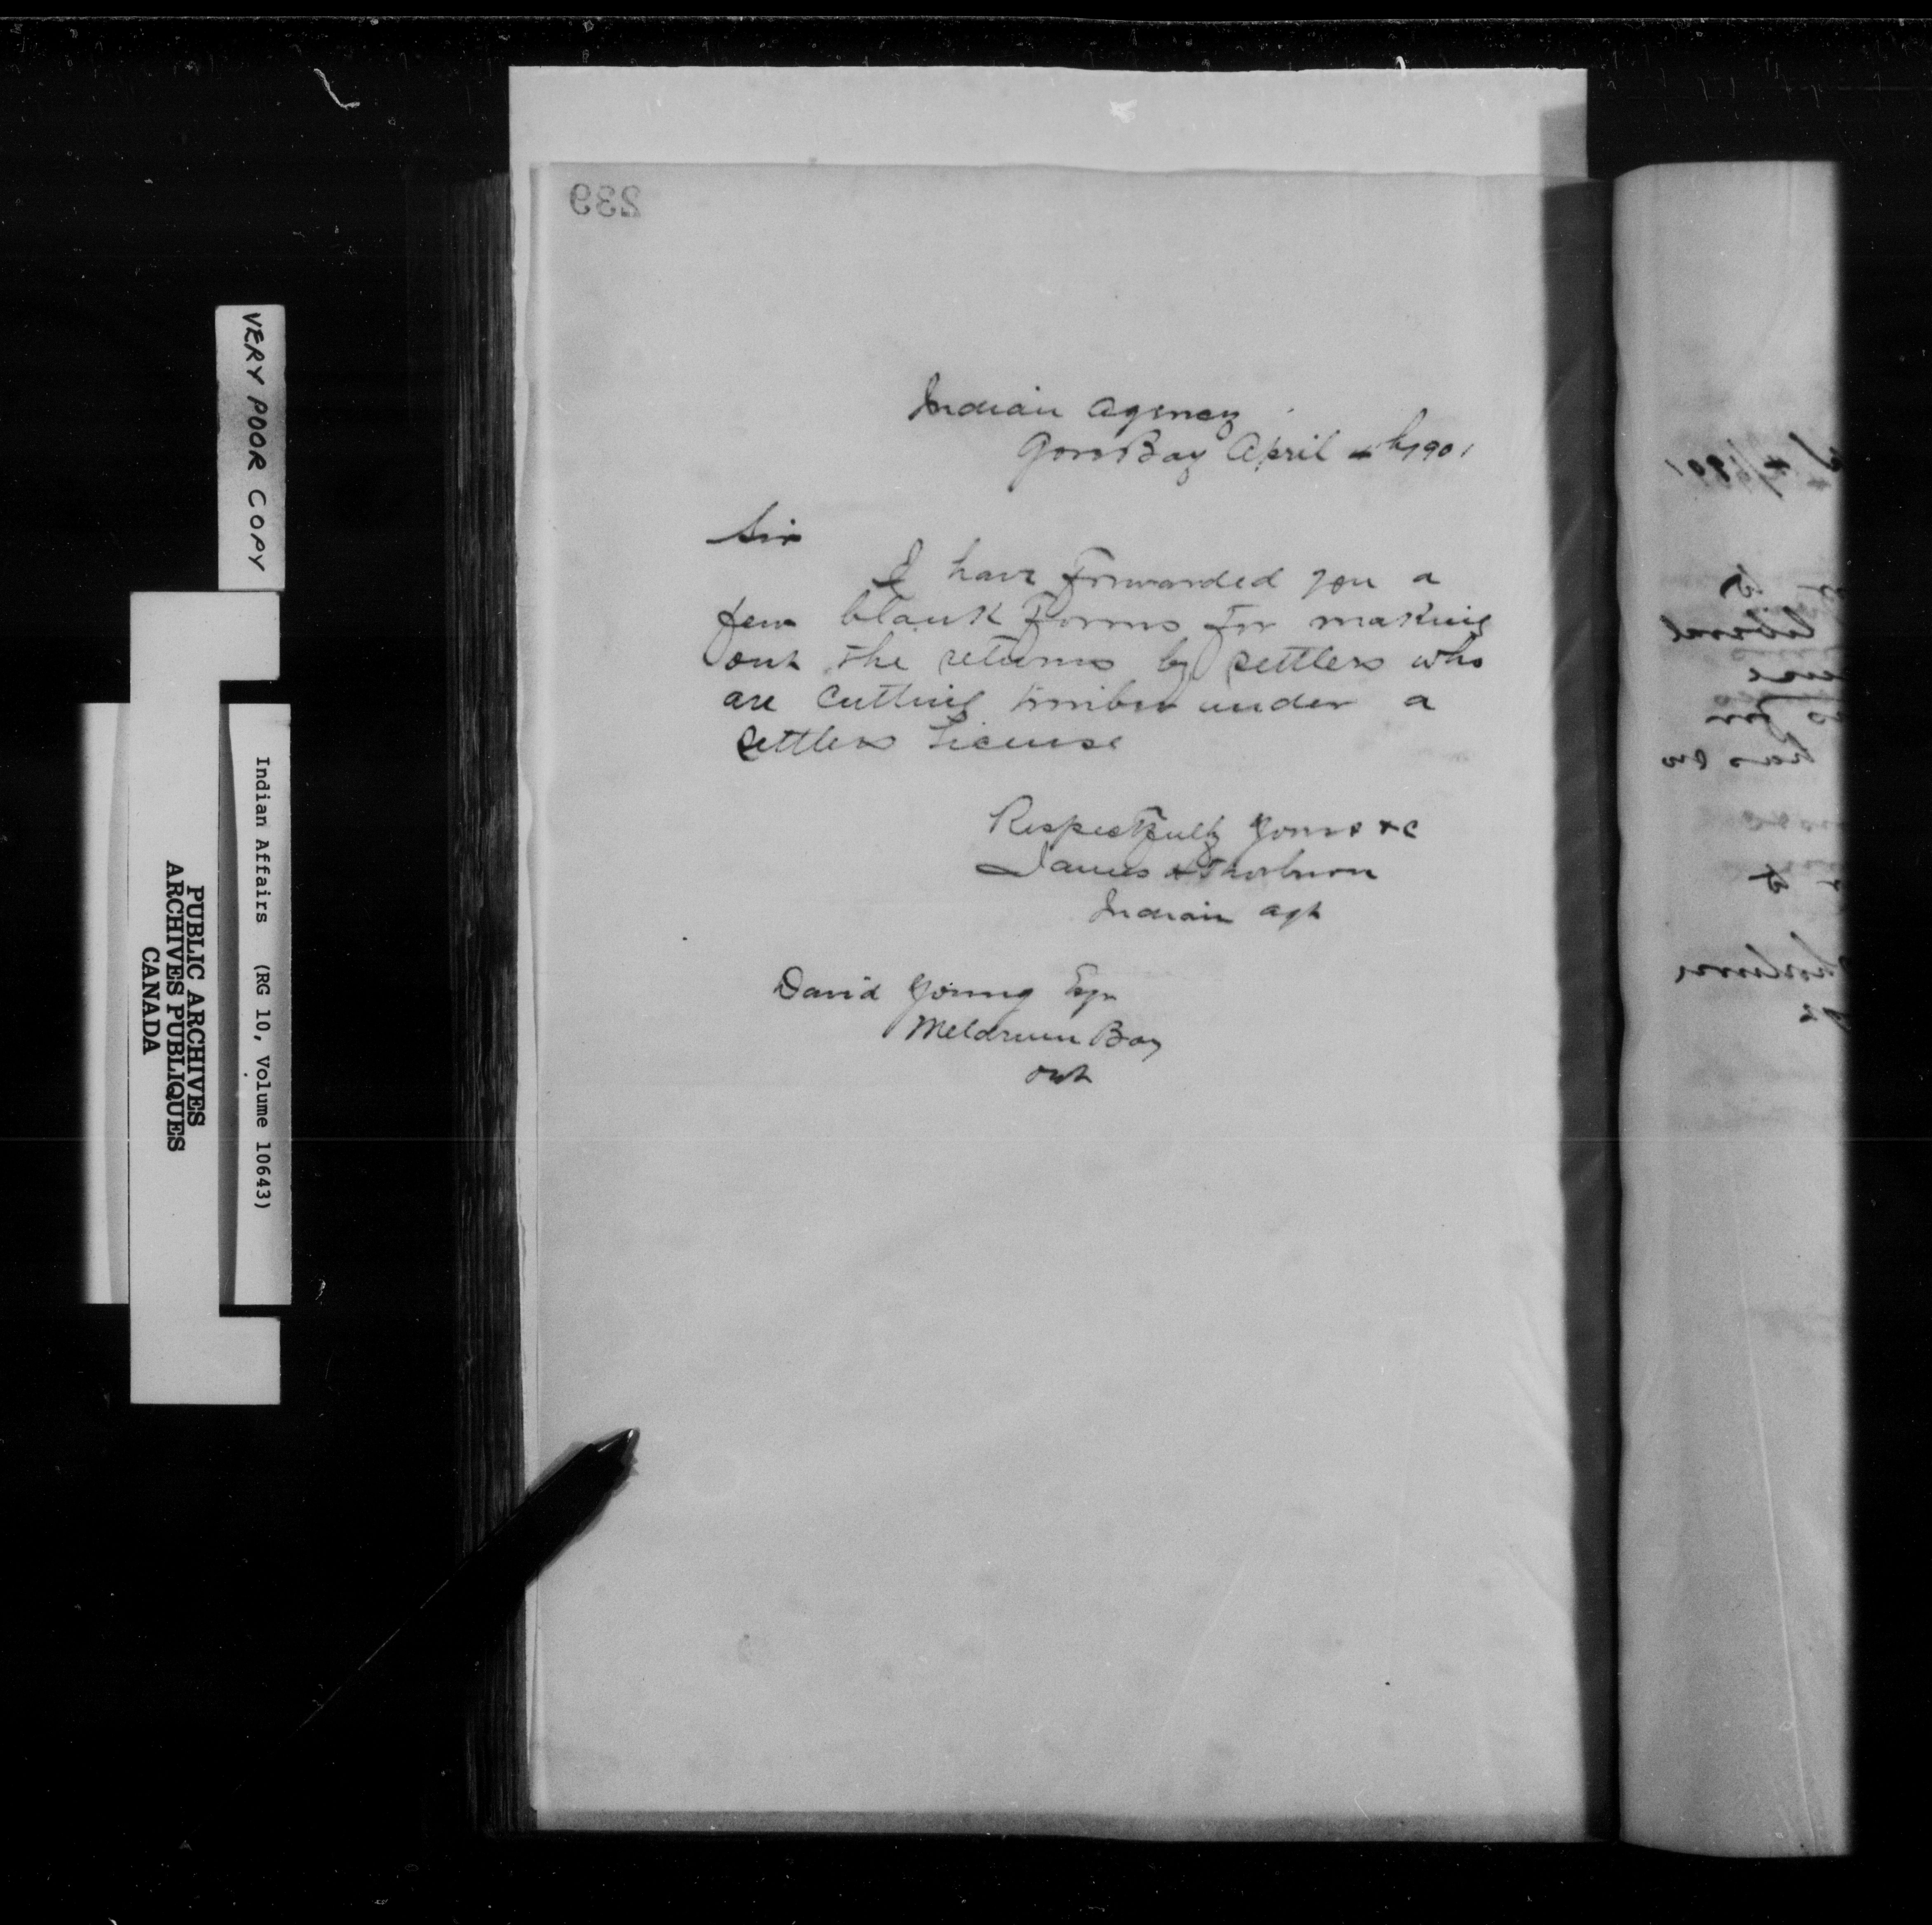 239
Indian Agency
Gore Bay April 4th 1901
Sir
I have forwarded you a
few blank forms for making
out the returns by settlers who
are cutting timber under a
settlers License
Respectfully yours &c
James H Thorburn
Indian Agt
David Young Esqr
Meldrum Bay
Ont
VERY POOR COPY
Indian Affairs (RG 10, Volume 10643)
PUBLIC ARCHIVES
ARCHIVES PUBLIQUES
CANADA